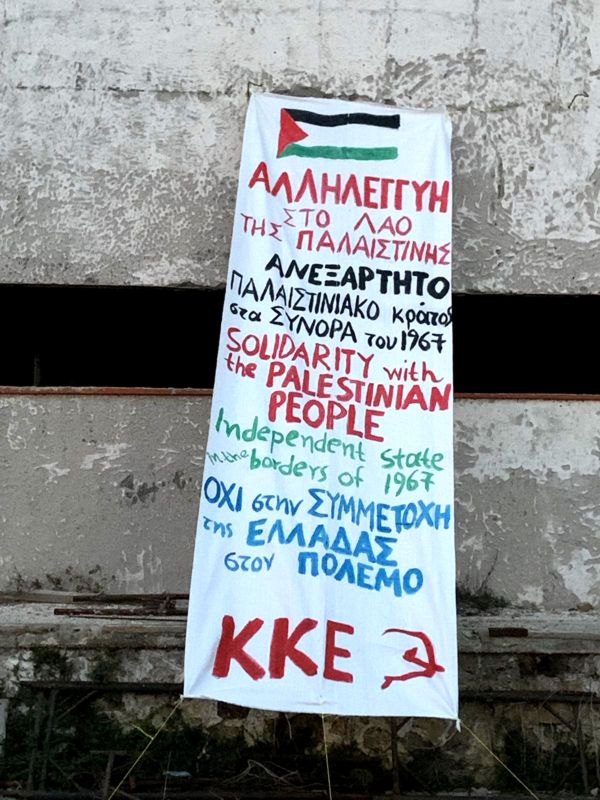 ΑΛΛΗΛΕΓΓΥΗ
ΣΤΟ ΛΑΟ
ΤΗΣ ΠΑΛΑΙΣΤΙΝΗΣ
ΑΝΕΞΑΡΤΗΤΟ
ΠΑΛΑΙΣΤΙΝΙΑΚΟ κράτος
στα ΣΥΝΟΡΑ του 1967
SOLIDARITY with
the PALESTINIAN
PEOPLE
Independent state
in the borders of 1967
ΟΧΙ στην ΣΥΜΜΕΤΟΧΗ
της ΕΛΛΑΔΑΣ
στον ΠΟΛΕΜΟ
ΚΚΕ